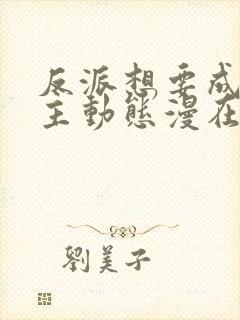 反派想要成
主動態漫在
劉美子